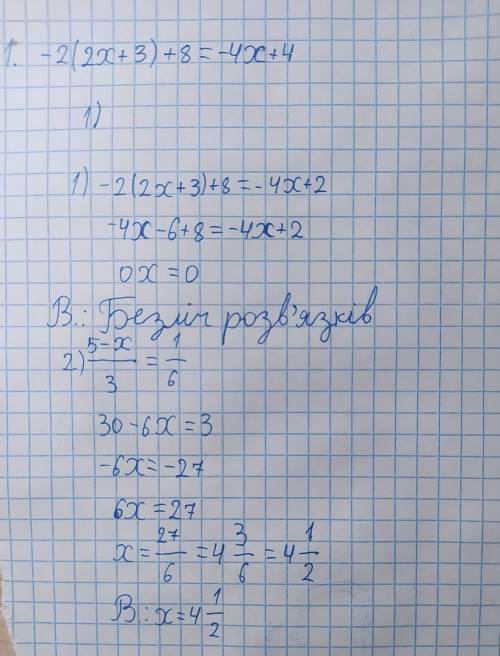 1. -2(2x+3)+8=-4x+4
1)
1) -2(2x+3)+8=-4x+2
-4x-6+8=-4x+2
0x=0
В.: Безліч розв'язків
2) \frac{5-x}{3} = \frac{1}{6}
30-6x=3
-6x=-27
6x=27
x=\frac{27}{6}=4\frac{3}{6}=4\frac{1}{2}
В.: x=4\frac{1}{2}